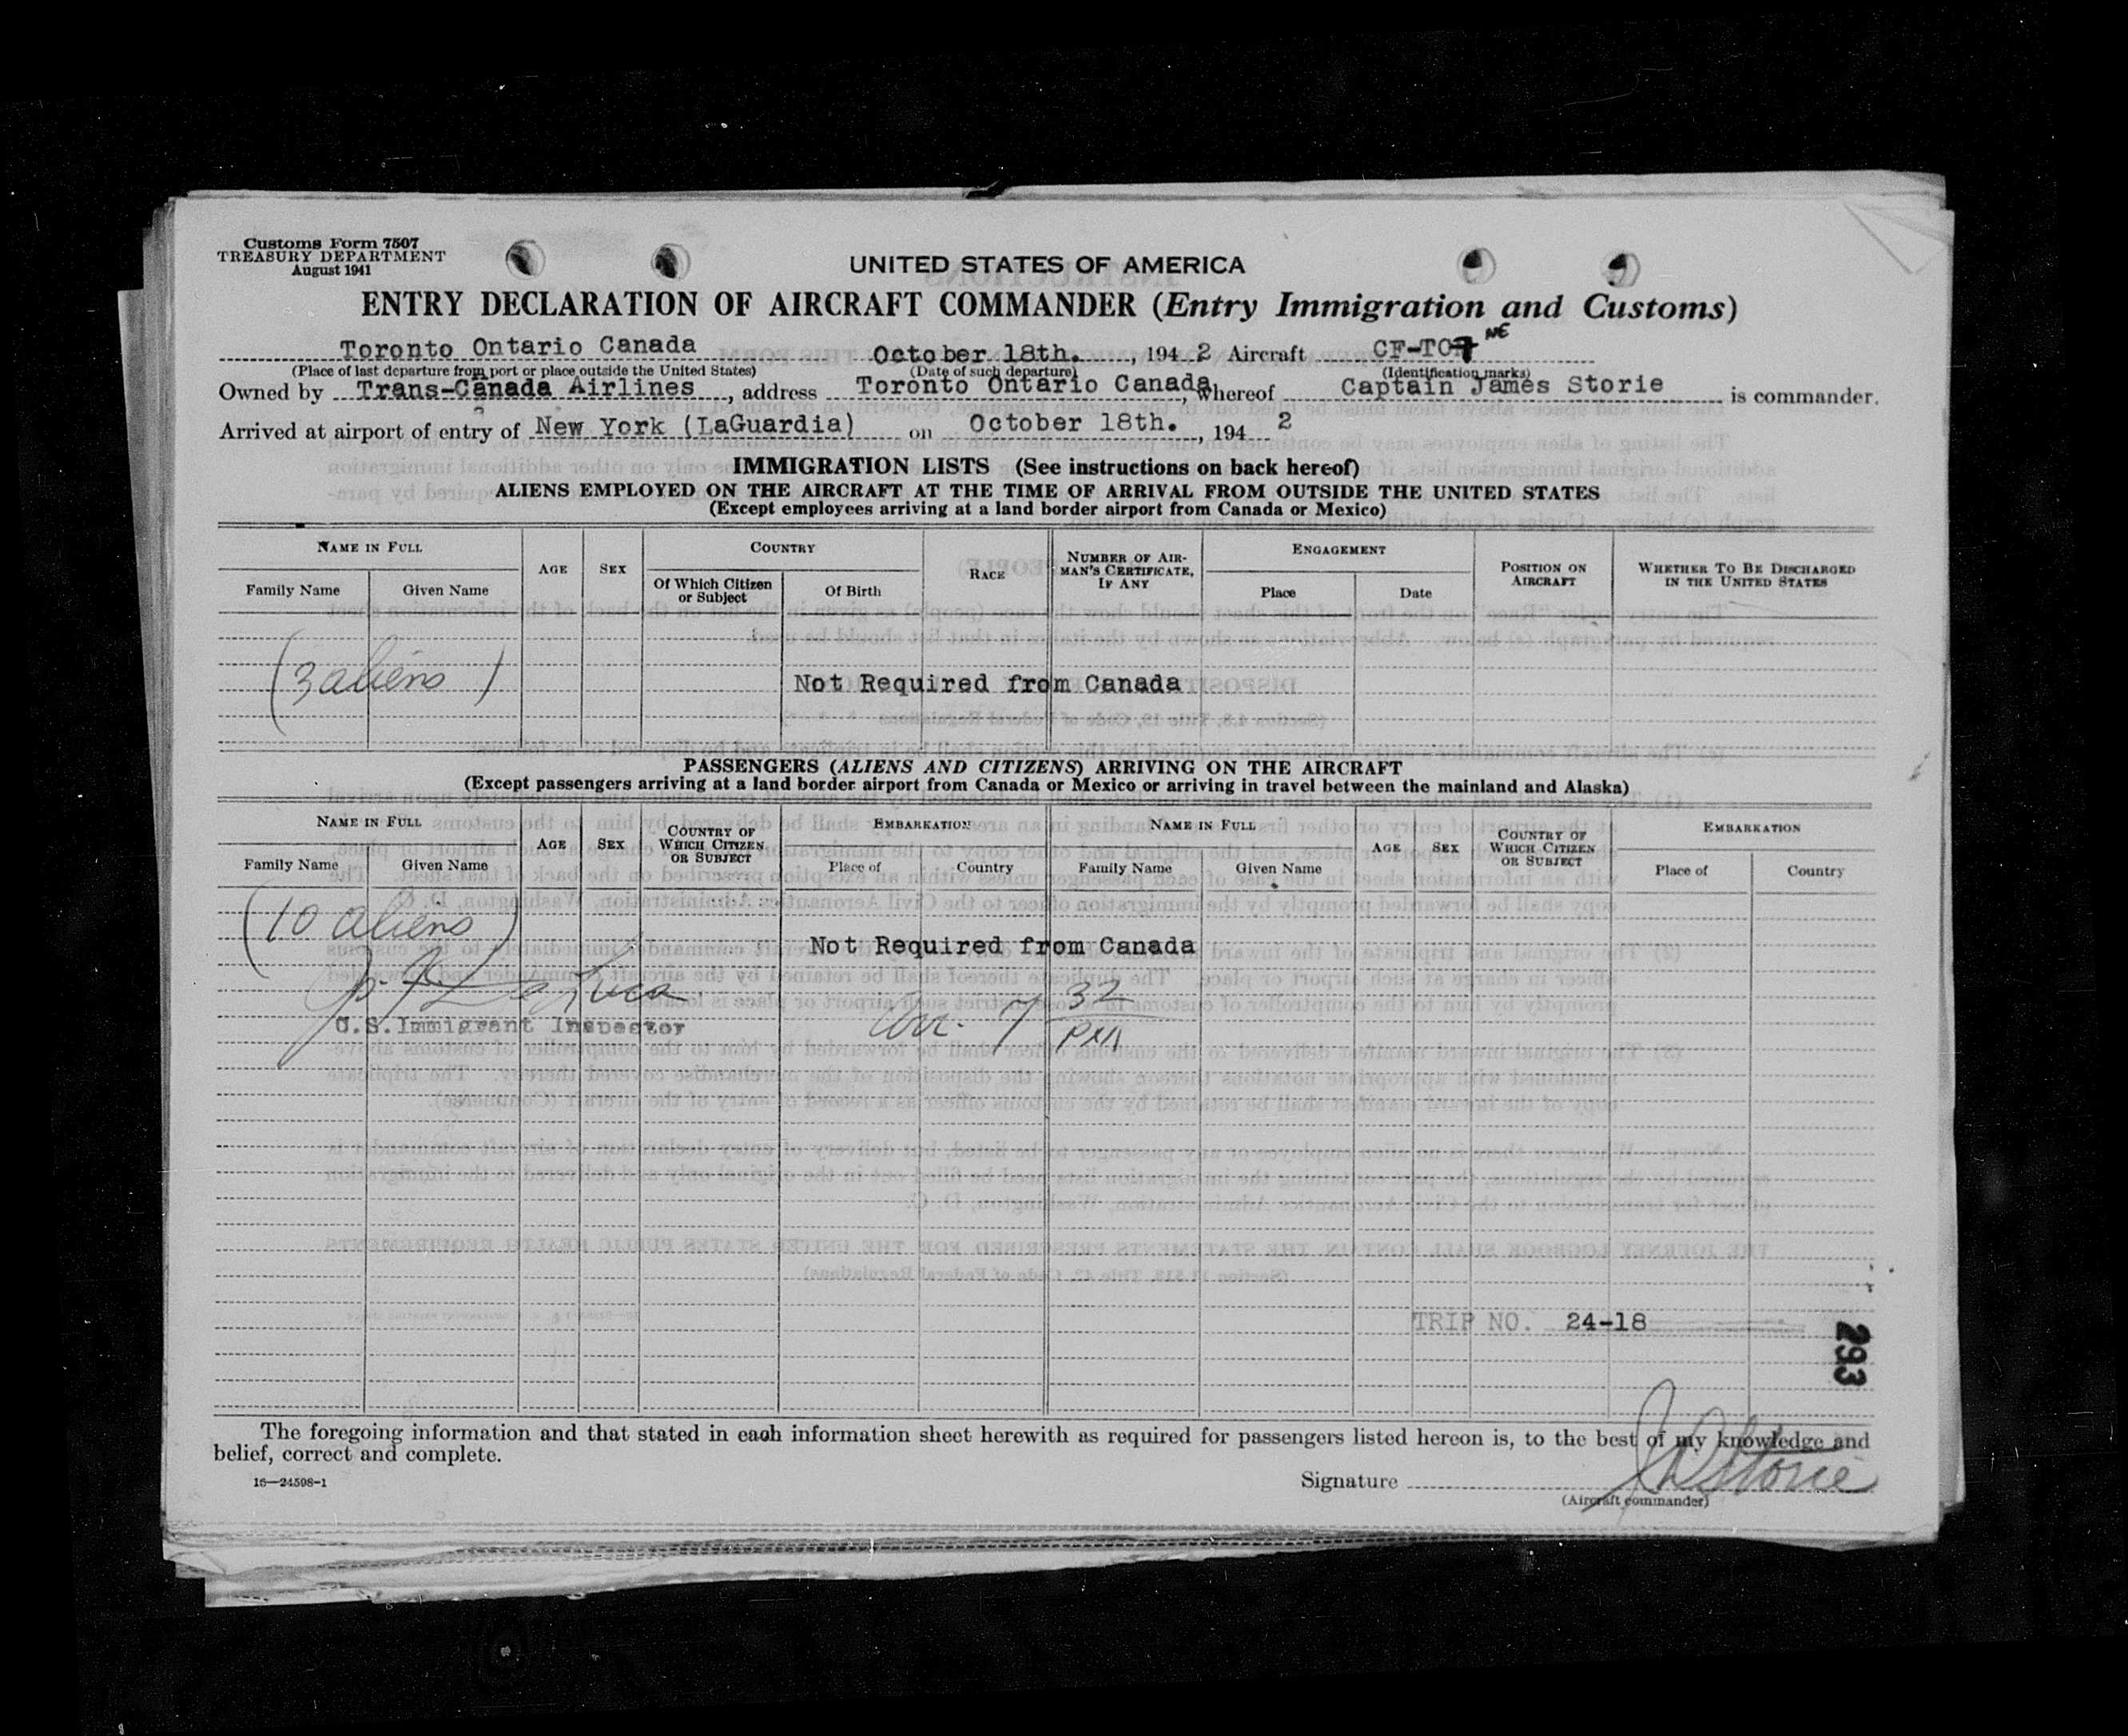 Customs Form 7507
TREASURY DEPARTMENT
August 1941
UNITED STATES OF AMERICA
ENTRY DECLARATION OF AIRCRAFT COMMANDER (Entry Immigration and Customs)
Toronto Ontario Canada October 18th. , 194 2 Aircraft CF-TC NE
(Place of last departure from port or place outside the United States) (Date of such departure) (Identification marks)
Owned by Trans-Canada Airlines , address Toronto Ontario Canada, whereof Captain James Storie is commander.
Arrived at airport of entry of New York (LaGuardia) on October 18th. , 194 2
IMMIGRATION LISTS (See instructions on back hereof)
ALIENS EMPLOYED ON THE AIRCRAFT AT THE TIME OF ARRIVAL FROM OUTSIDE THE UNITED STATES
(Except employees arriving at a land border airport from Canada or Mexico)
NAME IN FULL AGE SEX COUNTRY RACE NUMBER OF AIRMAN'S CERTIFICATE, IF ANY ENGAGEMENT POSITION ON AIRCRAFT WHETHER TO BE DISCHARGED IN THE UNITED STATES
Family Name Given Name Of Which Citizen or Subject Of Birth Place Date
(3 aliens) Not Required from Canada
PASSENGERS (ALIENS AND CITIZENS) ARRIVING ON THE AIRCRAFT
(Except passengers arriving at a land border airport from Canada or Mexico or arriving in travel between the mainland and Alaska)
NAME IN FULL AGE SEX COUNTRY OF WHICH CITIZEN OR SUBJECT EMBARKATION NAME IN FULL AGE SEX COUNTRY OF WHICH CITIZEN OR SUBJECT EMBARKATION
Family Name Given Name Place of Country Family Name Given Name Place of Country
(10 aliens)
Not Required from Canada
U.S. Immigrant Inspector
Arr. 7 32 PM
TRIP NO. 24-18
293
The foregoing information and that stated in each information sheet herewith as required for passengers listed hereon is, to the best of my knowledge and
belief, correct and complete.
16—24598-1
Signature Storie
(Aircraft commander)